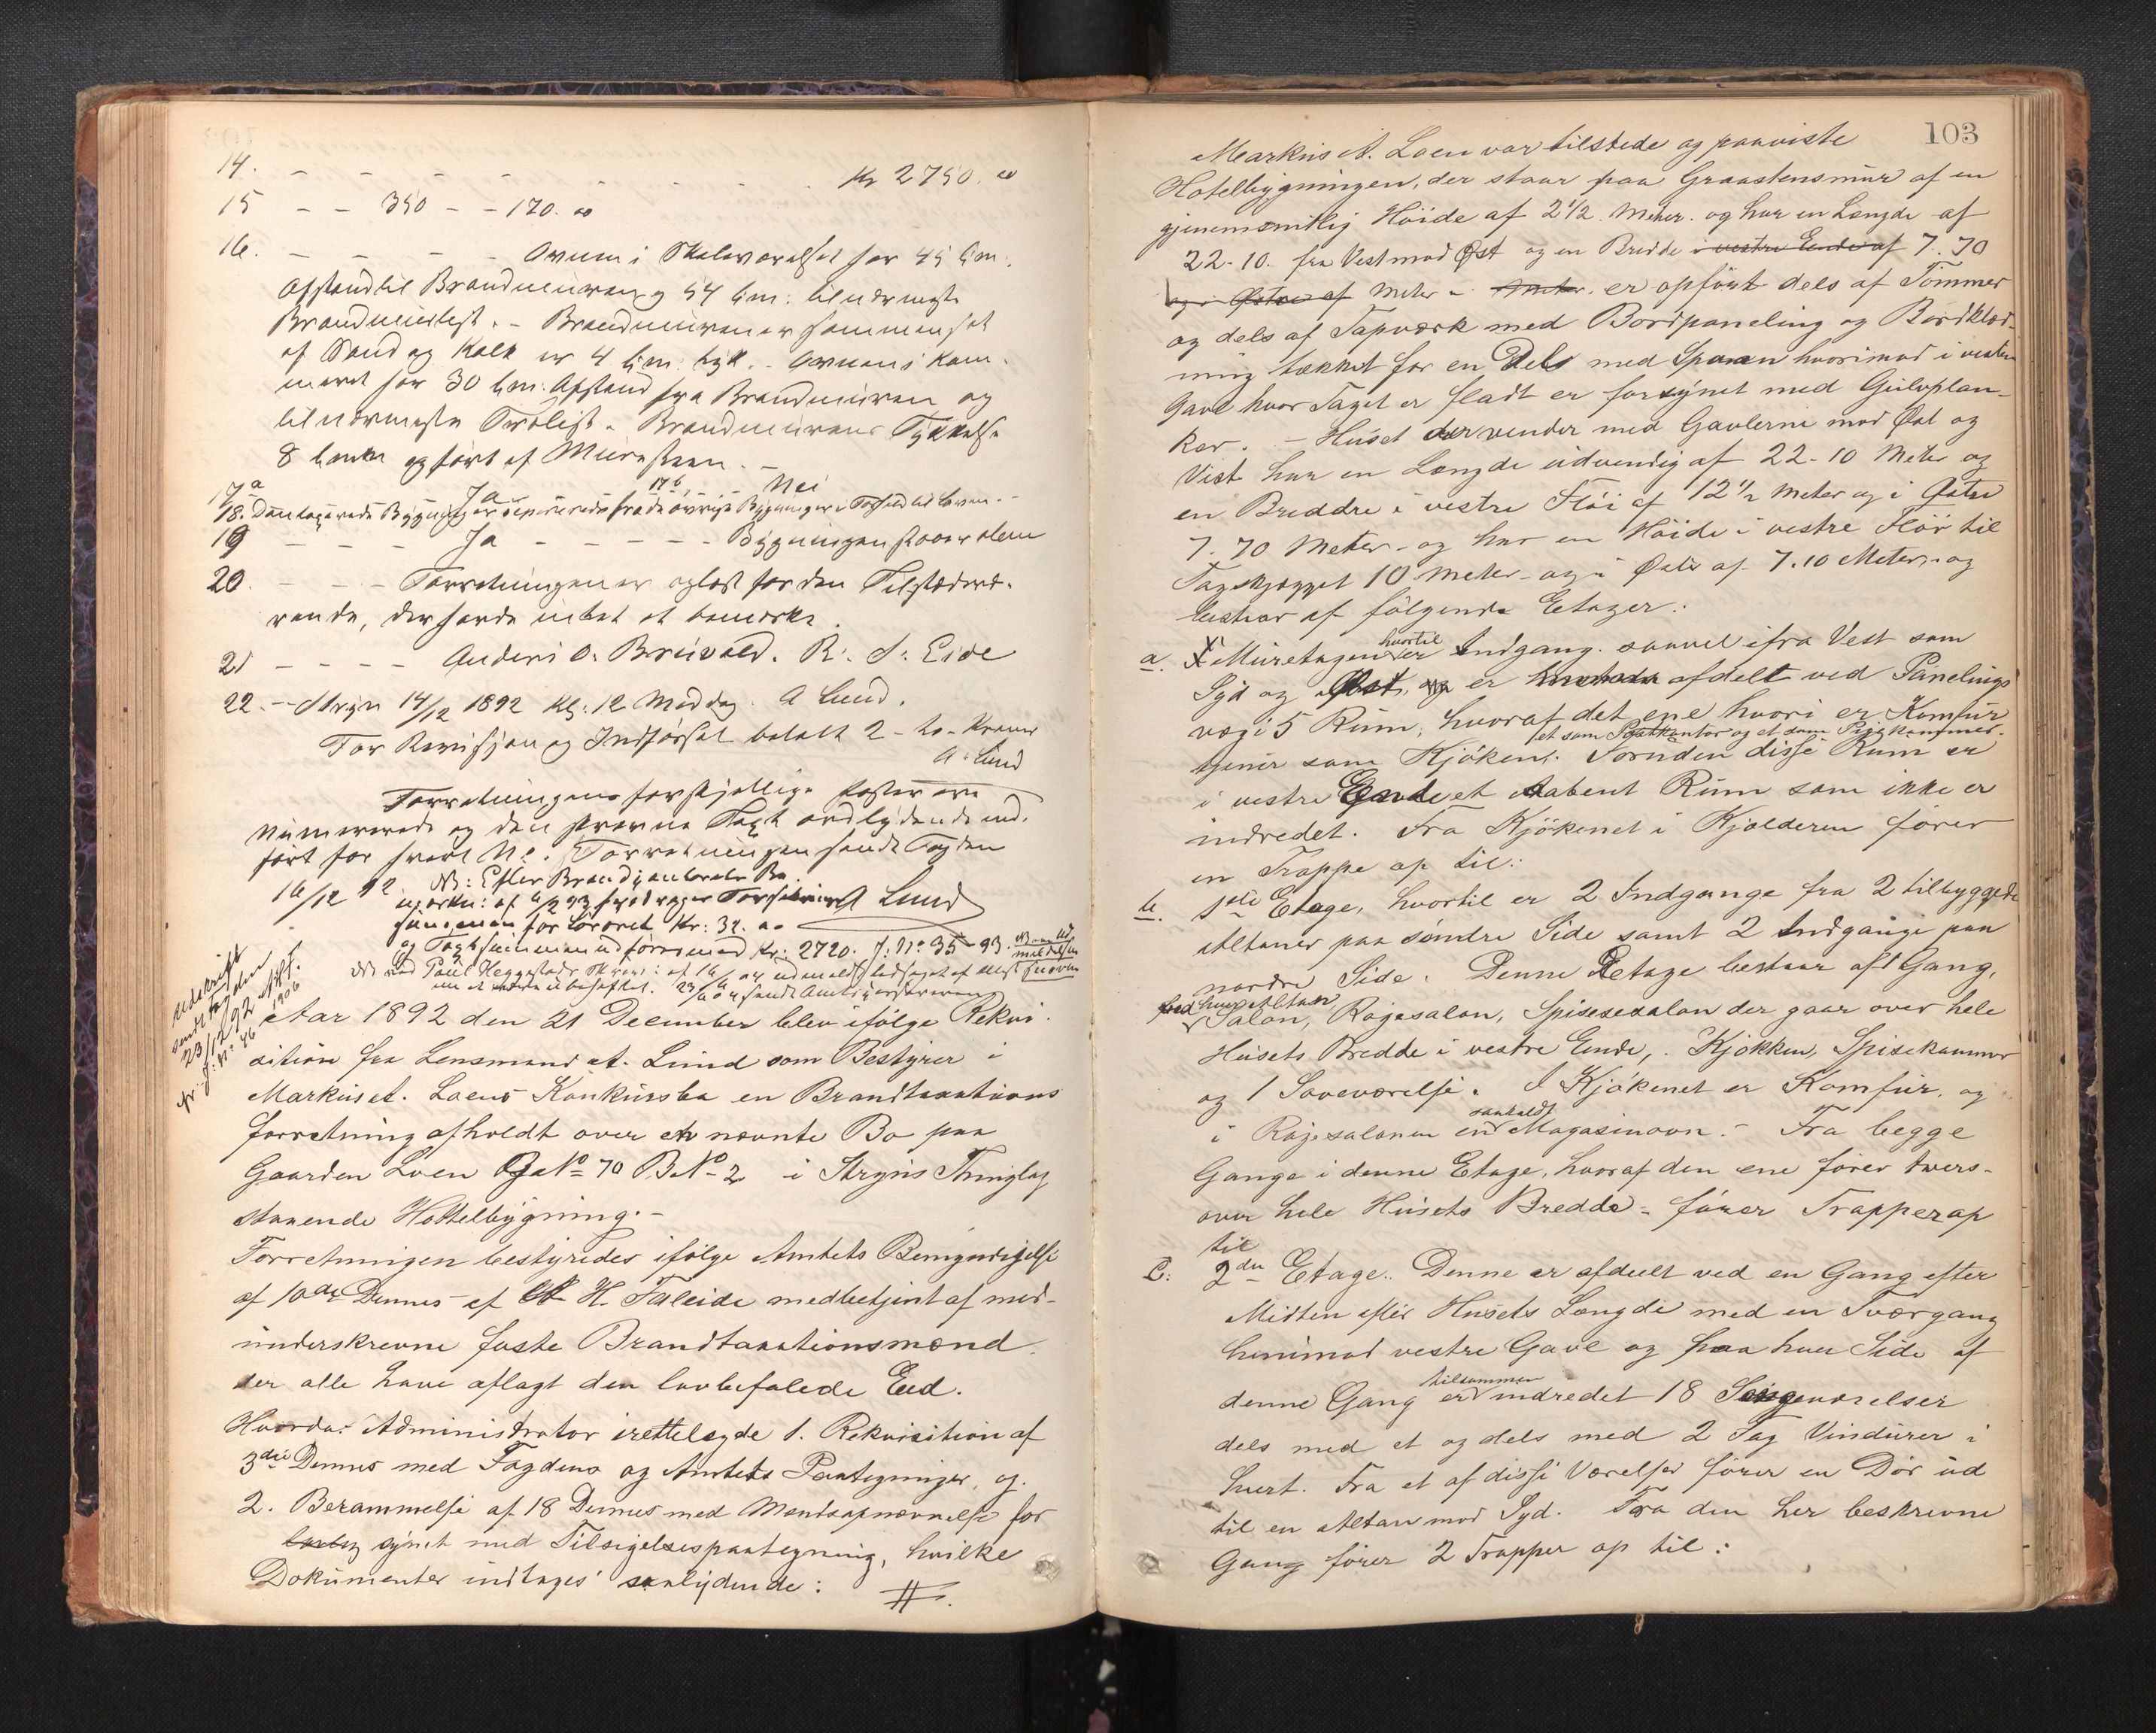 14. - - - - - - - - Kr 2750. 00
15 - - 350 - - 170. 00
16. - - - - Ovnen i Skoleværelset har 45 ctm.
Afstand til Brandmuren og 54 ctm: til nærmeste
Brandmurlist. - Brandmuren er sammensat
af Sand og Kalk er 4 ctm: tyk. - Ovnen i Kam-
meret har 30 ctm. Afstand fra Brandmuren og
til nærmeste Trælist - Brandmurens Tykkelse
8 opført af Mursteen. -
17a Ja - 17b - - Nei
18. Den taxerede Bygning er sepirerede fra de øvrige Bygninger i Forhold til Loven. -
19 - - - Ja - - - - - Bygningen staar alene
20. - - - Forretningen er oplæst for den Tilstædevæ-
rende, der havde intet at bemærke.
21 - - - - Anders O. Bruvold. R. S. Eide
22. - Stryn 14/12 1892 Kl. 12 Middag. A Lund.
For Revisjon og Indførsel betalt 2 - to - Kroner
A. Lund
Forretningens forskjellige Poster ere
Numererede og den skrevne Text ordlydende ind-
ført for hvert No. Forretningen sendt Fogden
16/12 92. A Lund
NB: Efter Brand
mærkn: af 93 fradrages
for Løsøret Kr: 32. 00
og Taxtsummen udføres med Kr: 2720. J. No 35 - 93.
Udskrift
sendt Fogden
23/12 92
J. No 46
Aar 1892 den 21 December blev ifølge Rekvi-
sition fra Lensmand A. Lund som Bestyrer i
Markus A. Loens Konkursbo en Brandtaxations
forretning afholdt over nævnte Bo paa
Gaarden Loen G No 70 B No 2 i Stryns Thinglag
staaende Hottelbygning. -
Forretningen bestyredes ifølge Amtets Bemyndigelse
af 10de Dennes af H. Faleide medbetjent af med-
underskrevne faste Brandtaxationsmænd
der alle have aflagt den lovbefalede Eed.
Hvorda: Administrator irettelagde 1. Rekvisition af
3die Dennes med Fogdens og Amtets Paategninger, og
2. Berammelse af 18 Dennes med Mandsopnævnelse for
synet med Tilsigelsespaategning, hvilke
Dokumenter indtages saalydende: #.
103
Markus A. Loen var tilstede og paaviste
Hotelbygningen, der staar paa Graastensmur af en
gjenemsnitlig Höide af 2 1/2. Meter. og har en Længde af
22-10. fra Vest mod Øst og en Bredde i vestre Ende af 7.70
og i Østre af Meter - Meter. er opført dels af Tömmer
og dels af Tapværk med Bordpaneling og Bordklæd-
ning tækket for en Dels med Spaan hvorimod i vestre
Gavl hvor Taget er fladt er forsynet med Gulvplan-
ker. - Huset der vender med Gavlerne mod Øst og
Vest har en Længde udvendig af 22-10 Meter og
en Breddre i vestre Flöi af 12 1/2 Meter og i Østre
7.70 Meter - og har en Höide i vestre Flöi til
Tagskjægget 10 Meter - og i Østre af 7.10 Meter, - og
bestaar af følgende Etager:
a. I Muretagen hvortil er Indgang. saavel ifra Vest som
Syd og Øst, og er afdelt ved Panelings
væg i 5 Rum, hvoraf det ene hvori er Komfur
tjener som Kjöken, et som Postkontor og et som Pigekammer. Foruden disse Rum er
i vestre Ende et aabent Rum som ikke er
indredet. Fra Kjökenet i Kjælderen förer
en Trappe op til:
b. 1ste Etage, hvortil er 2 Indgange fra 2 tilbyggede
Altaner paa söndre Side samt 2 Indgange paa
nordre Side. Denne Etage bestaar af 1 Gang,
Salon, Røgesalon, Spisesesalon der gaar over hele
Husets Bredde i vestre Ende, . Kjökken, Spisekammer
og 1 Soveværelse. I Kjökenet er Komfur, og
i Røgesalonen en saakaldt Magasinovn. - Fra begge
Gange i denne Etage, hvoraf den ene förer tvers-
over hele Husets Bredde - förer Trapper op
til
C: 2den Etage. Denne er afdeelt ved en Gang efter
Midten efter Husets Længde med en Tværgang
henimod vestre Gavl og paa hver Side af
denne Gang er tilsammen indredet 18 Sengeværelser
dels med et og dels med 2 Fag Vinduer i
hvert. Fra et af disse Værelser förer en Dör ud
til en Altan mod Syd. Fra den her beskrevne
Gang förer 2 Trapper op til: